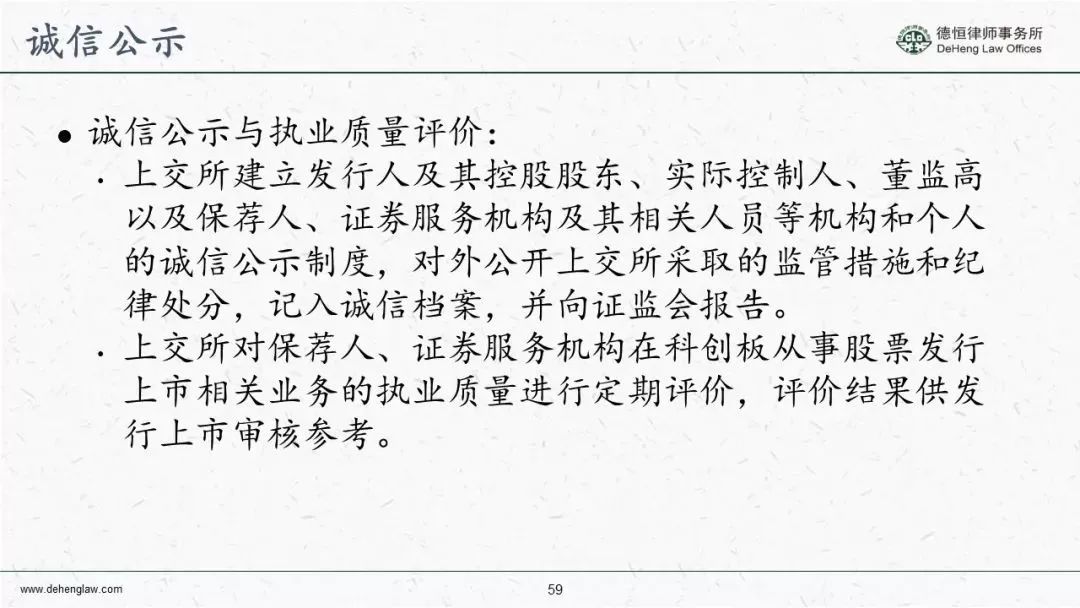 诚信公示
德恒律师事务所
DeHeng Law Offices
● 诚信公示与执业质量评价：
. 上交所建立发行人及其控股股东、实际控制人、董监高
以及保荐人、证券服务机构及其相关人员等机构和个人
的诚信公示制度，对外公开上交所采取的监管措施和纪
律处分，记入诚信档案，并向证监会报告。
. 上交所对保荐人、证券服务机构在科创板从事股票发行
上市相关业务的执业质量进行定期评价，评价结果供发
行上市审核参考。
www.dehenglaw.com
59